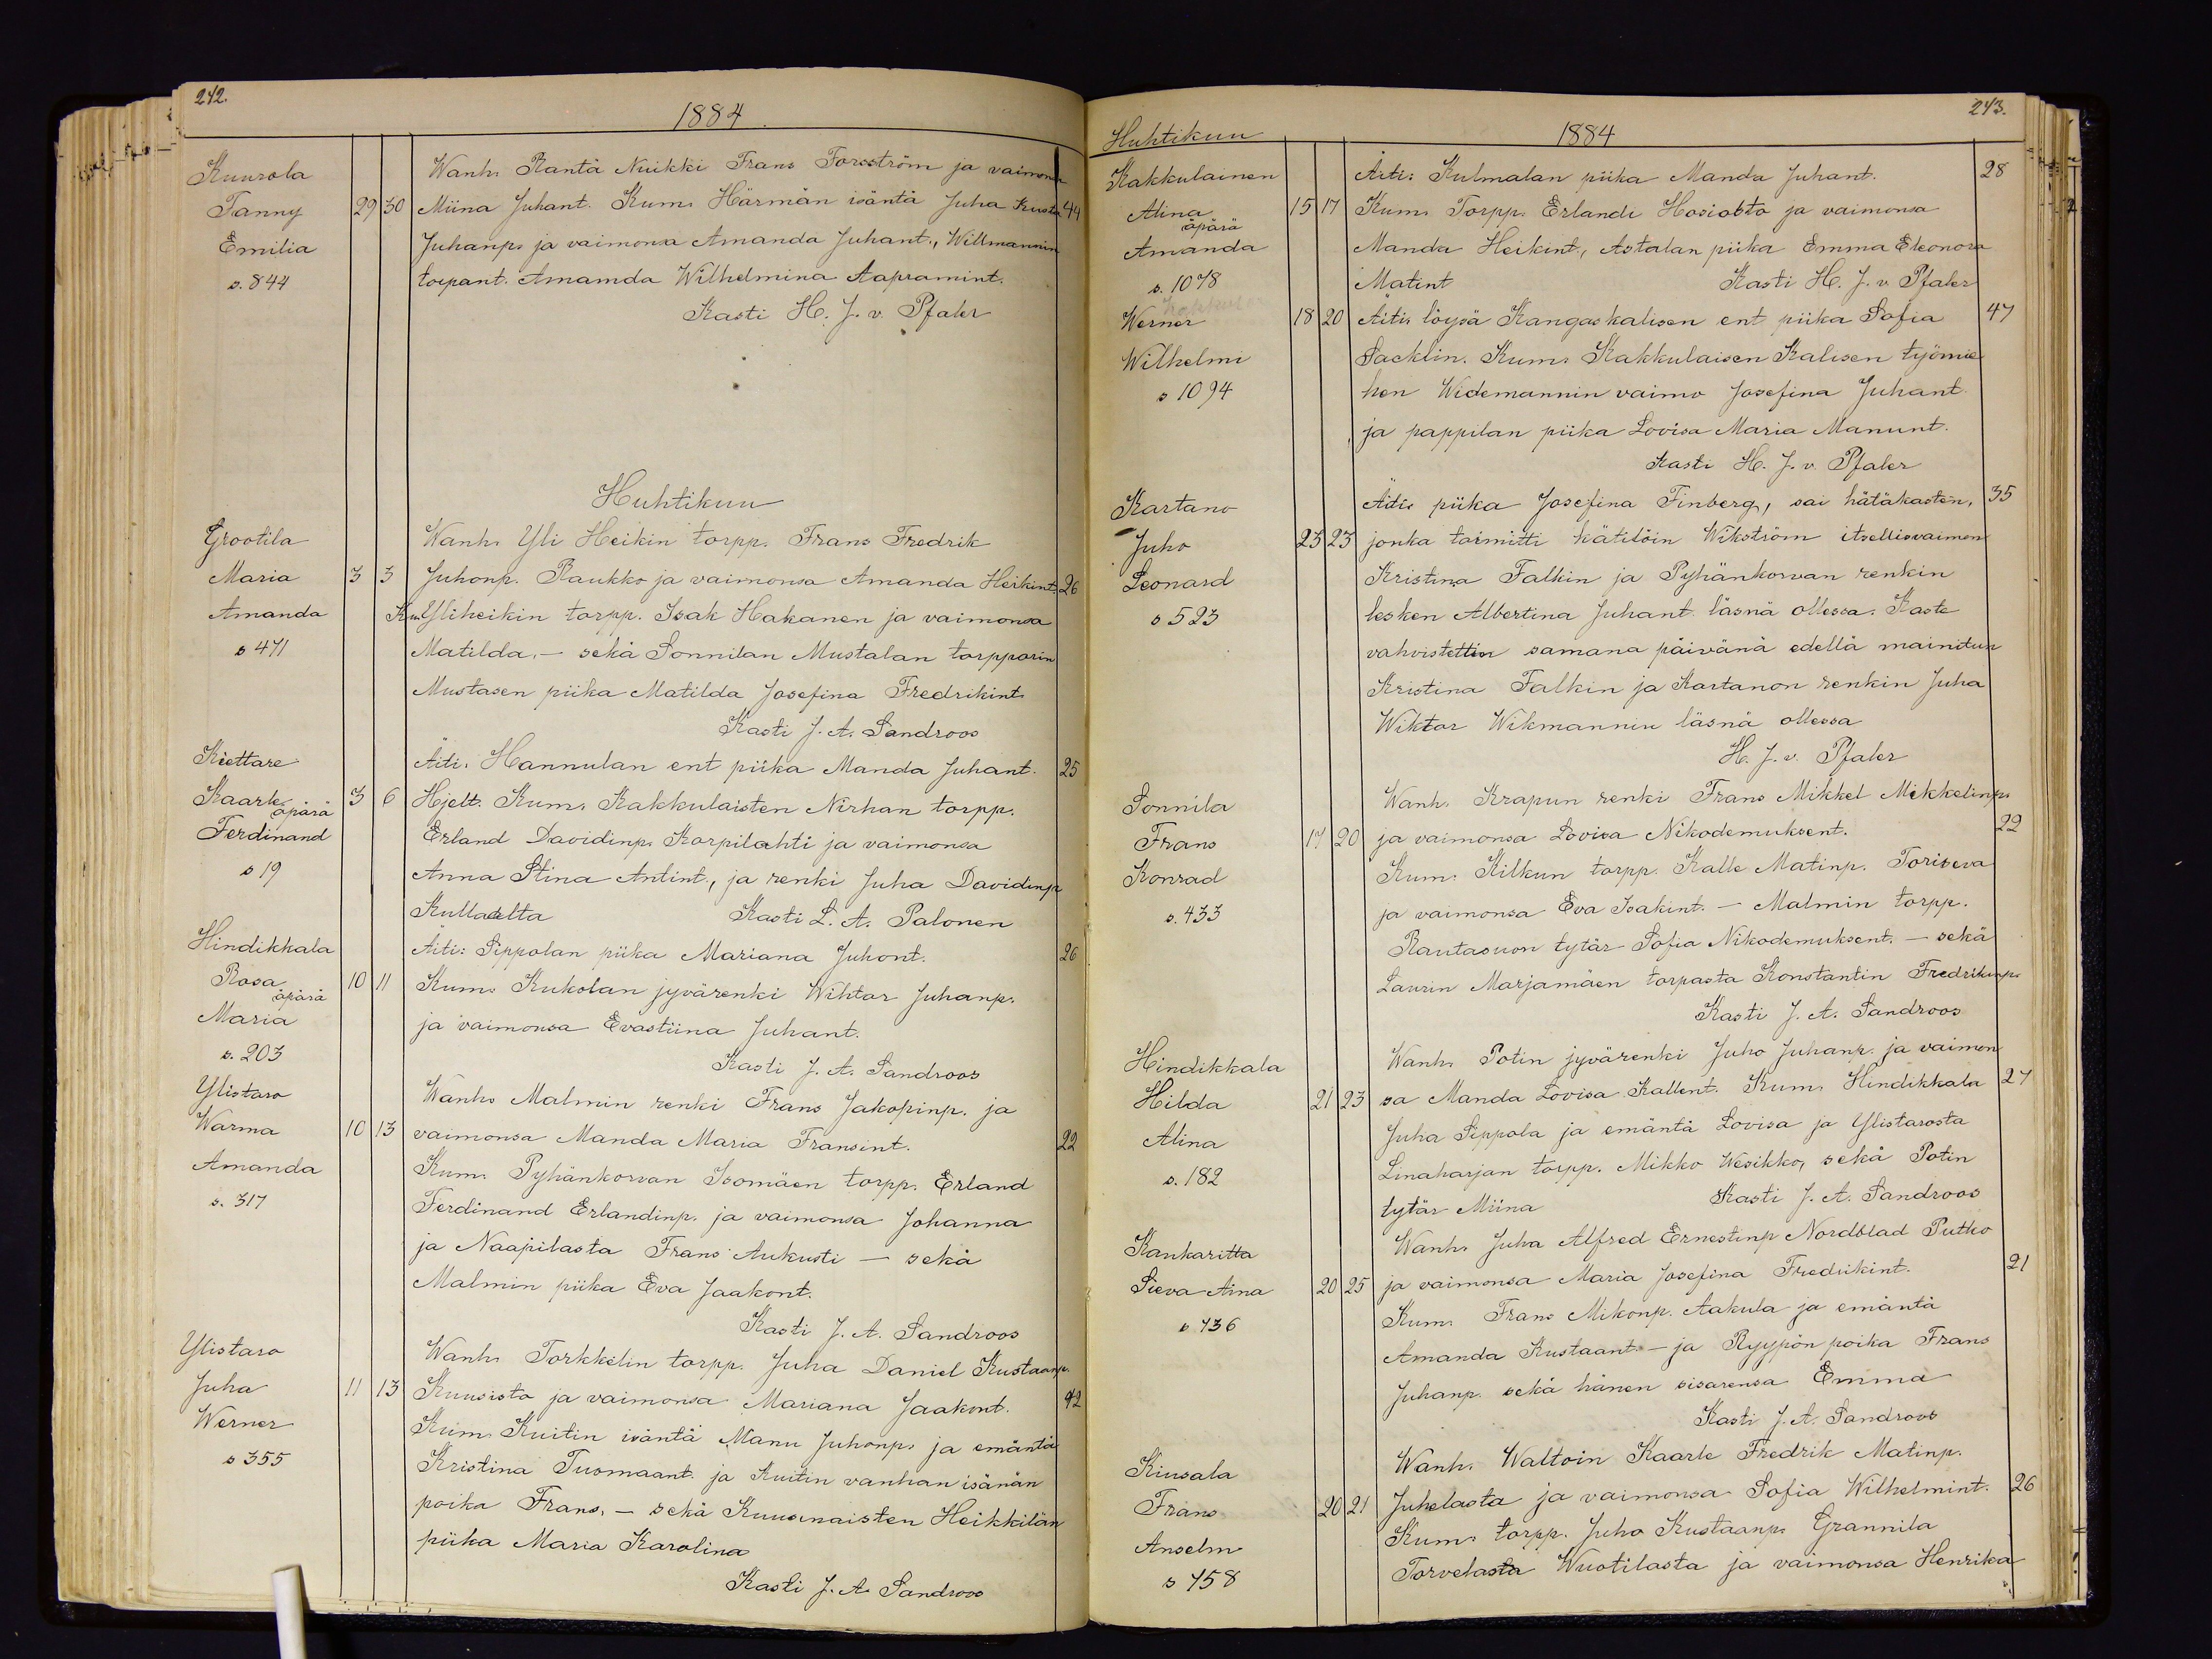 242.
1884
Kuurola
Wanh. Rantà Nuikki Frans Forsström ja vaimonsa
Fanny 29 30 Miina Juhant. Kum. Härmän isäntä Juha Kusta 44
Emilia
Juhanp. ja vaimonsa Amanda Juhant., Willmannin
s. 844
torpant. Amamda Wilhelmina Aapramint.
Kasti H. J. v. Pfaler
Huhtikuu
Grootila
Wanh. Yli Heikin torpp. Frans Fredrik
Maria 3 3 Juhonp. Raukko ja vaimonsa Amanda Heikint. 26
Amanda Kum. Yliheikin torpp. Isak Hakanen ja vaimonsa
s 471
Matilda, — sekä Sonnilan Mustalan torpparin
Mustasen piika Matilda Josefina Fredrikint.
Kasti J. A. Sandroos
Kiettare
Äiti. Hannulan ent piika Manda Juhant. 25
Kaarle äpärä 3 6 Hjelt. Kum. Kakkulaisten Nirhan torpp.
Ferdinand
Erland Davidinp. Karpilahti ja vaimonsa
s 19
Anna Stina Antint., ja renki Juha Davidinp
Kullaalta Kasti L. A. Palonen
Hindikkala
Äiti: Sippolan piika Mariana Juhont. 26
Rosa äpärä 10 11 Kum. Kukolan jyvärenki Wihtor Juhanp.
Maria
ja vaimonsa Evastiina Juhant.
s. 203
Kasti J. A. Sandroos
Ylistaro
Wanh. Malmin renki Frans Jakopinp. ja
Warma 10 13 vaimonsa Manda Maria Fransint. 22
Amanda
Kum. Pyhänkorvan Isomäen torpp. Erland
s. 317
Ferdinand Erlandinp. ja vaimonsa Johanna
ja Naapilasta Frans Aukusti — sekä
Malmin piika Eva Jaakont.
Kasti J. A. Sandroos
Ylistaro
Wanh. Torkkelin torpp. Juha Daniel Kustaanp.
Juha 11 13 Kuusisto ja vaimonsa Mariana Jaakont. 42
Werner
Kum. Kuitin isäntä Manu Juhonp. ja emäntä
s 355
Kristina Tuomaant. ja Kuitin vanhan isänän
poika Frans, — sekä Kuusinaisten Heikkilän
piika Maria Karolina
Kasti J. A. Sandroos
243.
Huhtikuu
1884
Kakkulainen
Äiti: Kulmalan piika Manda Juhant. 28
Alina äpärä 15 17 Kum. Torpp. Erlandi Hosiobta ja vaimonsa
Amanda
Manda Heikint., Astalan piika Emma Eleonora
s. 1078
Matint Kasti H. J. v. Pfaler
Werner 18 20 Äiti. löysä Kangaskalisen ent piika Sofia 47
Wilhelmi
Sacklin. Kum. Kakkulaisen Kalisen työmie
s 1094
hen Widemannin vaimo Josefina Juhant
ja pappilan piika Lovisa Maria Manunt.
Kasti H. J. v. Pfaler
Kartano
Äiti. piika Josefina Finberg, sai hätäkasten, 35
Juho 23 23 jonka toimitti kätilöin Wikström itsellisvaimon
Leonard
Kristina Falkin ja Pyhänkorvan renkin
s 523
lesken Albertina Juhant läsnä ollessa. Kaste
vahvistettiin samana päivänä edellä mainitun
Kristina Falkin ja Kartanon renkin Juha
Wiktor Wikmannin läsnä ollessa
H. J. v. Pfaler
Sonnila
Wanh. Krapun renki Frans Mikkel Mikkelinp.
Frans 17 20 ja vaimonsa Lovisa Nikodemuksent. 22
Konrad
Kum. Kilkun torpp. Kalle Matinp. Toriseva
s. 433
ja vaimonsa Eva Isakint. — Malmin torpp.
Rautasuon tytär Sofia Nikodemuksent. — sekä
Laurin Marjamäen torpasta Konstantin Fredrikinp.
Kasti J. A. Sandroos
Hindikkala
Wanh. Potin jyvärenki Juho Juhanp. ja vaimon
Hilda 21 23 sa Manda Lovisa Kallent. Kum. Hindikkala 27
Alina
Juha Sippola ja emäntä Lovisa ja Ylistarosta
s. 182
Linaharjan torpp. Mikko Wesikko, sekä Potin
tytär Miina Kasti J. A. Sandroos
Kankaritta
Wanh. Juha Alfred Ernestinp Nordblad Putko
Sieva Aina 20 25 ja vaimonsa Maria Josefina Fredrikint. 21
s 736
Kum. Frans Mikonp. Aakula ja emäntä
Amanda Kustaant. — ja Ryypön poika Frans
Juhanp. sekä hänen sisarensa Emma
Kasti J. A. Sandroos
Kiusala
Wanh. Waltoin Kaarle Fredrik Matinp.
Frans 20 21 Juhelasta ja vaimonsa Sofia Wilhelmint. 26
Anselm
Kum. torpp. Juho Kustaanp. Grannila
s 758
Torvelasta Wuotilasta ja vaimonsa Henrika